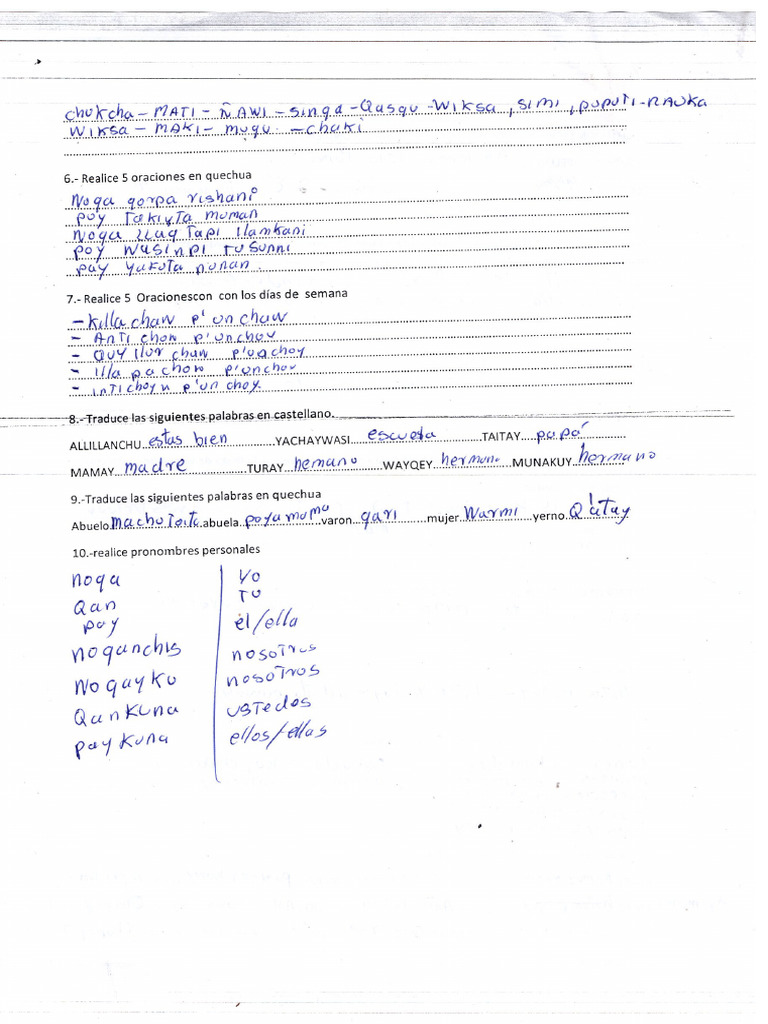 chukcha - MATI - ÑAWI - sinqa - Qasqu - Wiksa, SIMI, pupuTi - RAUKA
WIKSA - MAKI - muqu - chaki
6.- Realice 5 oraciones en quechua
Noqa qorpa rishani
pay Takiyta muman
Noqa llaq Tapi llamkani
pay Wasinpi Tusunni
pay yakuta punan
7.- Realice 5 Oracionescon con los días de semana
- Killa chaw p'un chaw
- Anti chow p'unchov
- Quy llur chaw p'uachoy
- Illa pa chow p'unchov
- inTi choyn p'un choy.
8.-Traduce las siguientes palabras en castellano.
ALLILLANCHU estas bien YACHAYWASI escuela TAITAY papá
MAMAY madre TURAY hemano WAYQEY hermano MUNAKUY hermano
9.-Traduce las siguientes palabras en quechua
Abuelo machu Taita abuela paya mama varon qari mujer Warmi yerno Q'atay
10.-realice pronombres personales
noqa yo
Qan TU
pay él/ella
noqanchis nosoTros
Noqayku nosoTros
Qankuna usTedos
paykuna ellos/ellas